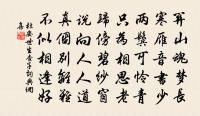 關山魂夢長
寒雁音書少
兩鬢可憐青
只為相思老
歸傍碧紗窗
說向人人道
真個別離難
不似相逢好
杜安世生查子詞典網